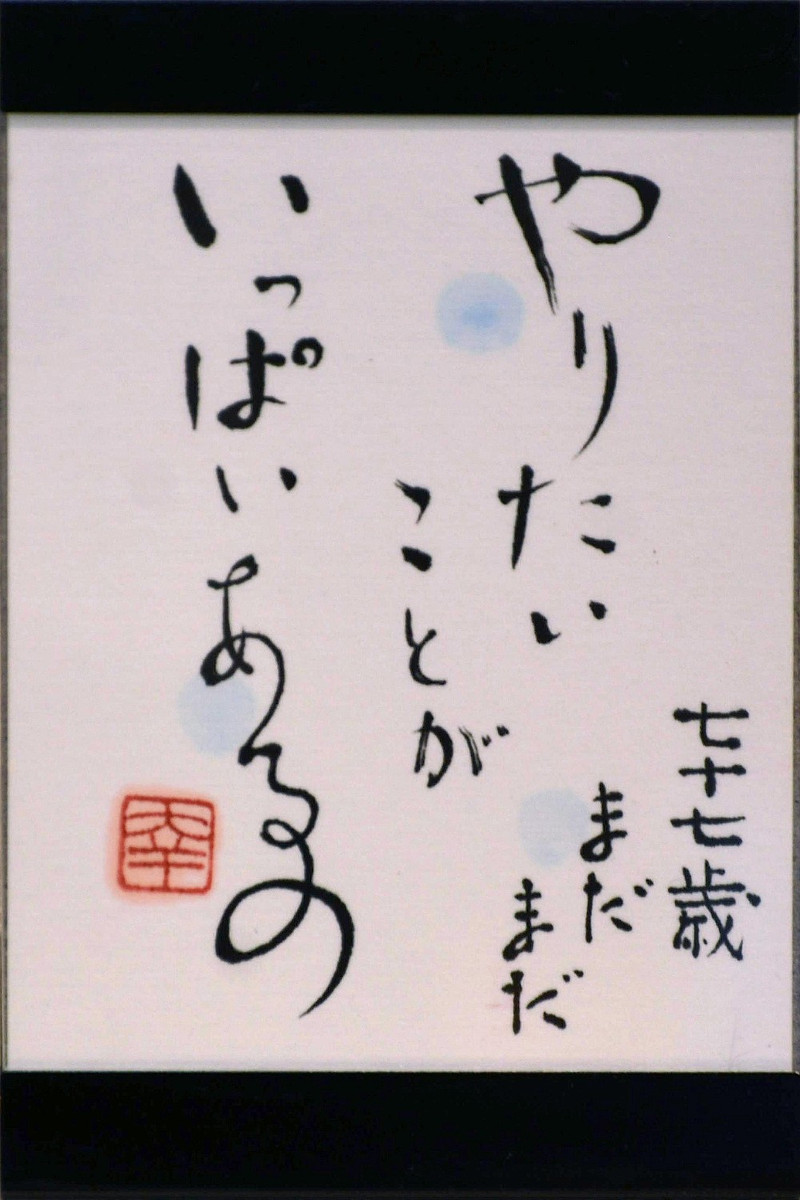 七十七歳
まだ
まだ
やりたい
ことが
いっぱいあるの
幸